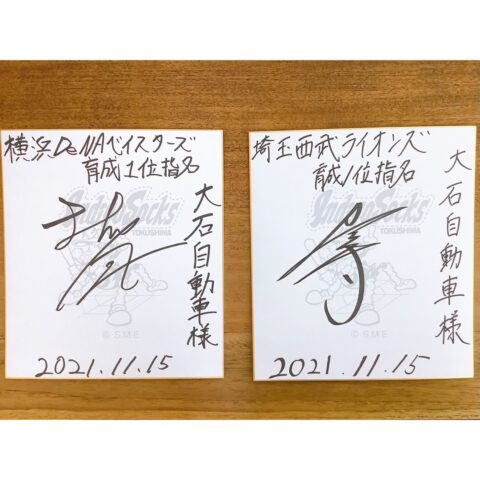 横浜DeNAベイスターズ
育成1位指名
大石自動車様
Indigo Socks
TOKUSHIMA
© S.M.E.
2021.11.15
埼玉西武ライオンズ
育成1位指名
大石自動車様
Indigo Socks
TOKUSHIMA
© S.M.E.
2021.11.15